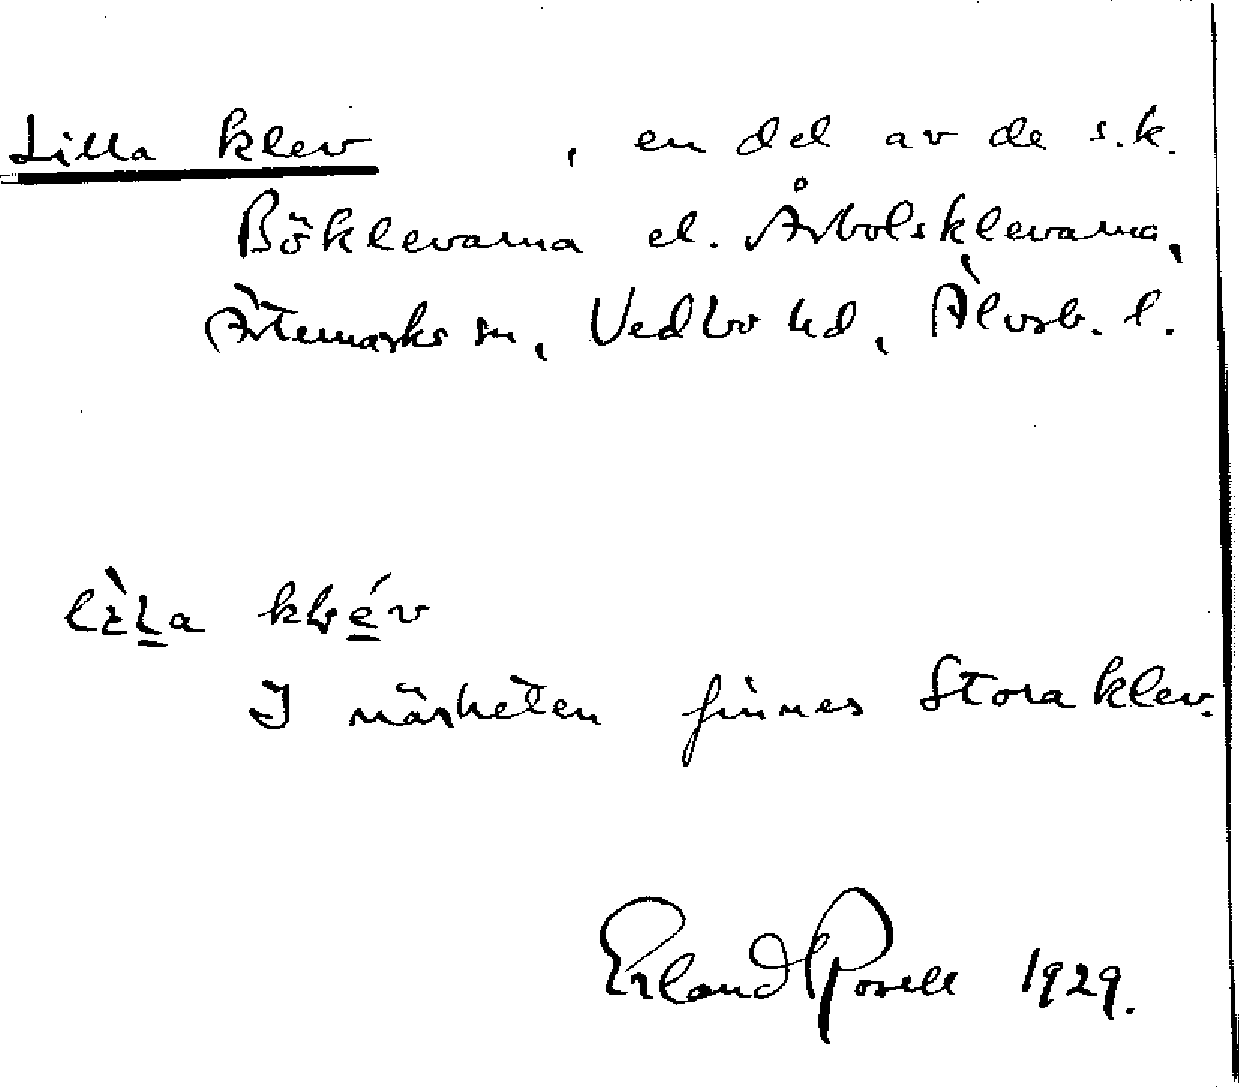 Lilla klev , en del av de s.k.
Böklevarna el. Årbolsklevarna,
Ärtemarks sn, Vedbo hd, Älvsb. l.
I närheten finnes Stora klev.
Erland Rosell 1929.